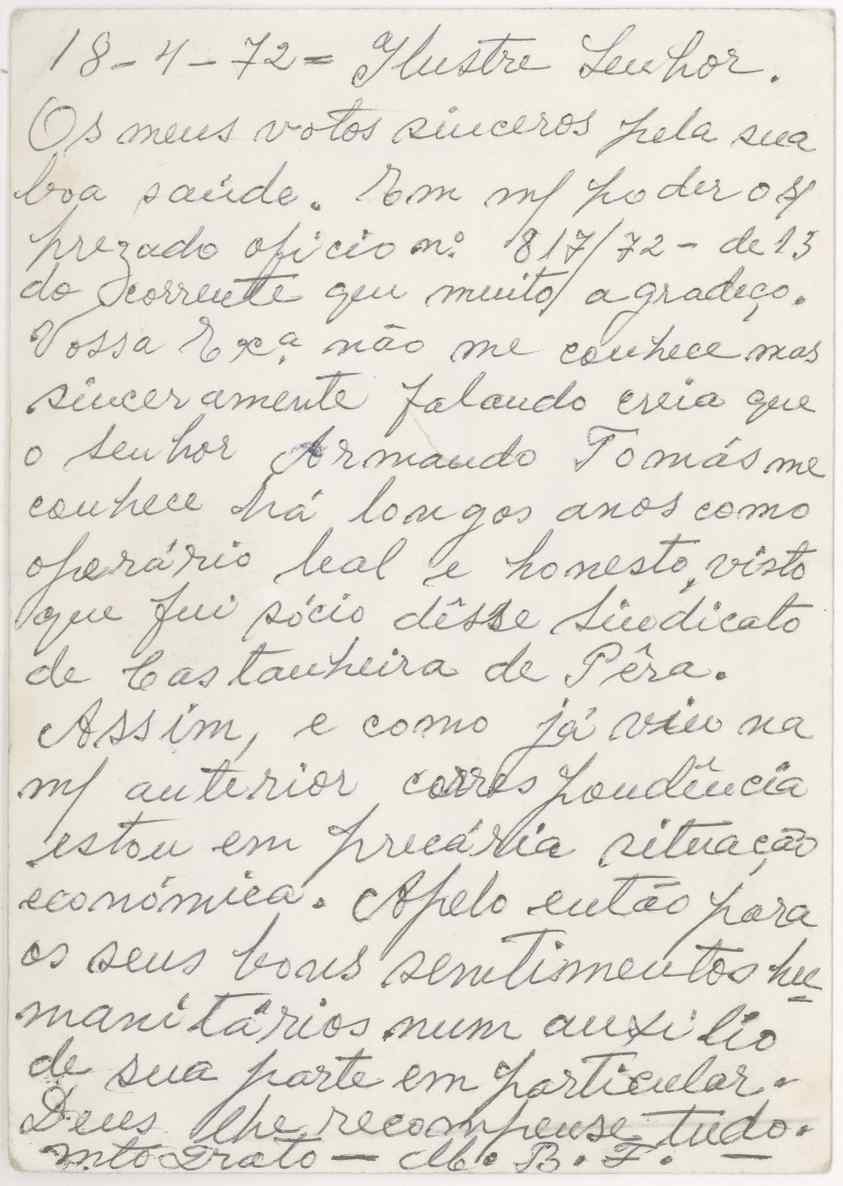 18-4-72= Ilustre Senhor.
Os meus votos sinceros pela sua
boa saúde. Em m/ poder o s/
prezado oficio nº. 817/72- de 13
do corrente que muito agradeço.
Vossa Exª. não me conhece mas
sinceramente falando creia que
o senhor Armando Tomás me
conhece há longos anos como
operário leal e honesto, visto
que fui sócio dêsse Sindicato
de Castanheira de Pêra.
Assim, e como já viu na
m/ anterior correspondência
estou em precária situação
económica. Apelo então para
os seus bons sentimentos hu
manitários num auxilio
de sua parte em particular.
Deus lhe recompense tudo.
mto grato — M. B. F. —